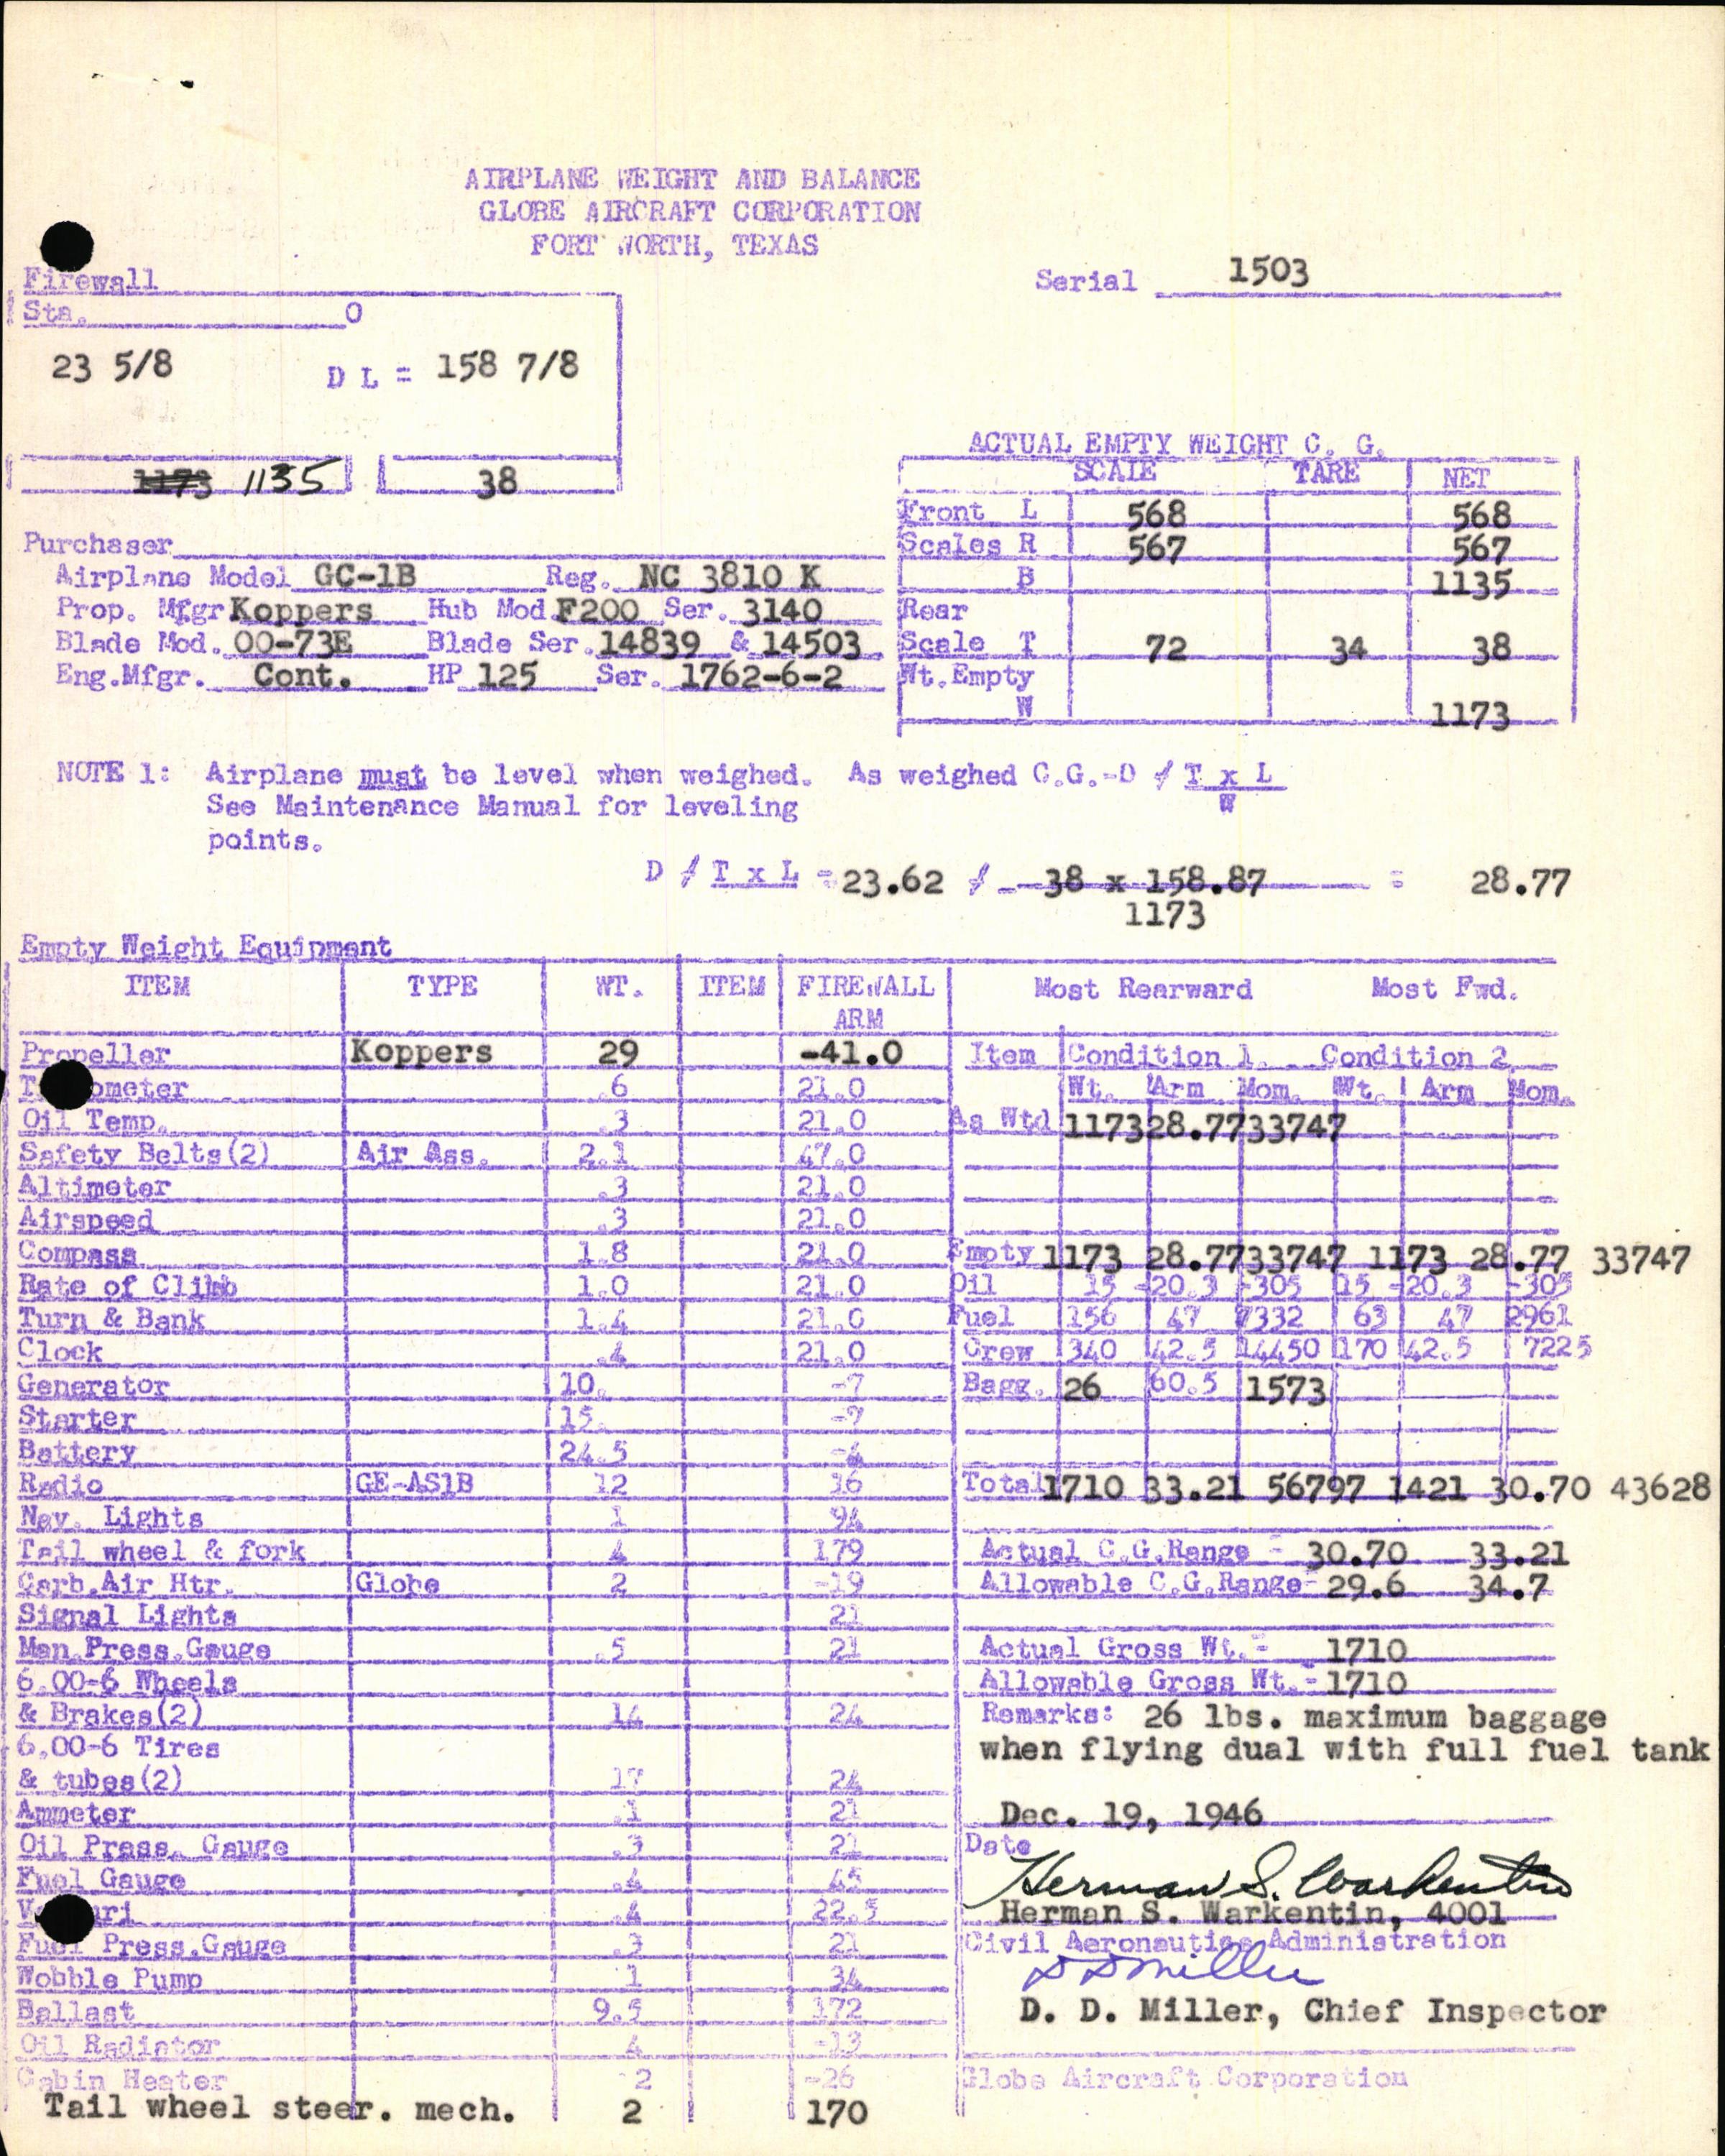 AIRPLANE WEIGHT AND BALANCE
GLOBE AIRCRAFT CORPORATION
FORT WORTH, TEXAS
Serial 1503
Firewall
Sta. 0
23 5/8 D L = 158 7/8
1173 1135 38
ACTUAL EMPTY WEIGHT C. G.
SCALE TARE NET
Front L 568 568
Scales R 567 567
B 1135
Rear
Scale T 72 34 38
Wt.Empty
W 1173
Purchaser
Airplane Model GC-1B Reg. NC 3810 K
Prop. Mfgr Koppers Hub Mod F200 Ser. 3140
Blade Mod. 00-73E Blade Ser. 14839 & 14503
Eng.Mfgr. Cont. HP 125 Ser. 1762-6-2
NOTE 1: Airplane must be level when weighed. As weighed C.G.-D / T x L
W
See Maintenance Manual for leveling
points.
D / T x L = 23.62 / 38 x 158.87 = 28.77
1173
Empty Weight Equipment
ITEM TYPE WT. ITEM FIREWALL
ARM
Propeller Koppers 29 -41.0
T ometer .6 21.0
Oil Temp. .3 21.0
Safety Belts(2) Air Ass. 2.1 47.0
Altimeter .3 21.0
Airspeed .3 21.0
Compass 1.8 21.0
Rate of Climb 1.0 21.0
Turn & Bank 1.4 21.0
Clock .4 21.0
Generator 10. -7
Starter 15. -7
Battery 24.5 -4
Radio GE-AS1B 12 16
Nav. Lights 1 94
Tail wheel & fork 4 179
Carb.Air Htr. Globe 2 -19
Signal Lights 21
Man.Press.Gauge .5 21
6.00-6 Wheels
& Brakes(2) 14 24
6.00-6 Tires
& tubes(2) 17 24
Ammeter .1 21
Oil Press. Gauge .3 21
Fuel Gauge .4 45
V uri .4 22.5
Fuel Press.Gauge .3 21
Wobble Pump 1 34
Ballast 9.5 172
Oil Radiator 4 -13
Cabin Heater 2 -26
Tail wheel steer. mech. 2 170
Most Rearward Most Fwd.
Item Condition 1. Condition 2
Wt. Arm Mom. Wt. Arm Mom.
As Wtd 1173 28.77 33747
Empty 1173 28.77 33747 1173 28.77 33747
Oil 15 -20.3 -305 15 -20.3 -305
Fuel 156 47 7332 63 47 2961
Crew 340 42.5 14450 170 42.5 7225
Bagg. 26 60.5 1573
Total 1710 33.21 56797 1421 30.70 43628
Actual C.G.Range - 30.70 33.21
Allowable C.G.Range- 29.6 34.7
Actual Gross Wt.- 1710
Allowable Gross Wt.- 1710
Remarks: 26 lbs. maximum baggage
when flying dual with full fuel tank
Dec. 19, 1946
Date
Herman S. Warkentin
Herman S. Warkentin, 4001
Civil Aeronautics Administration
D D Miller
D. D. Miller, Chief Inspector
Globe Aircraft Corporation